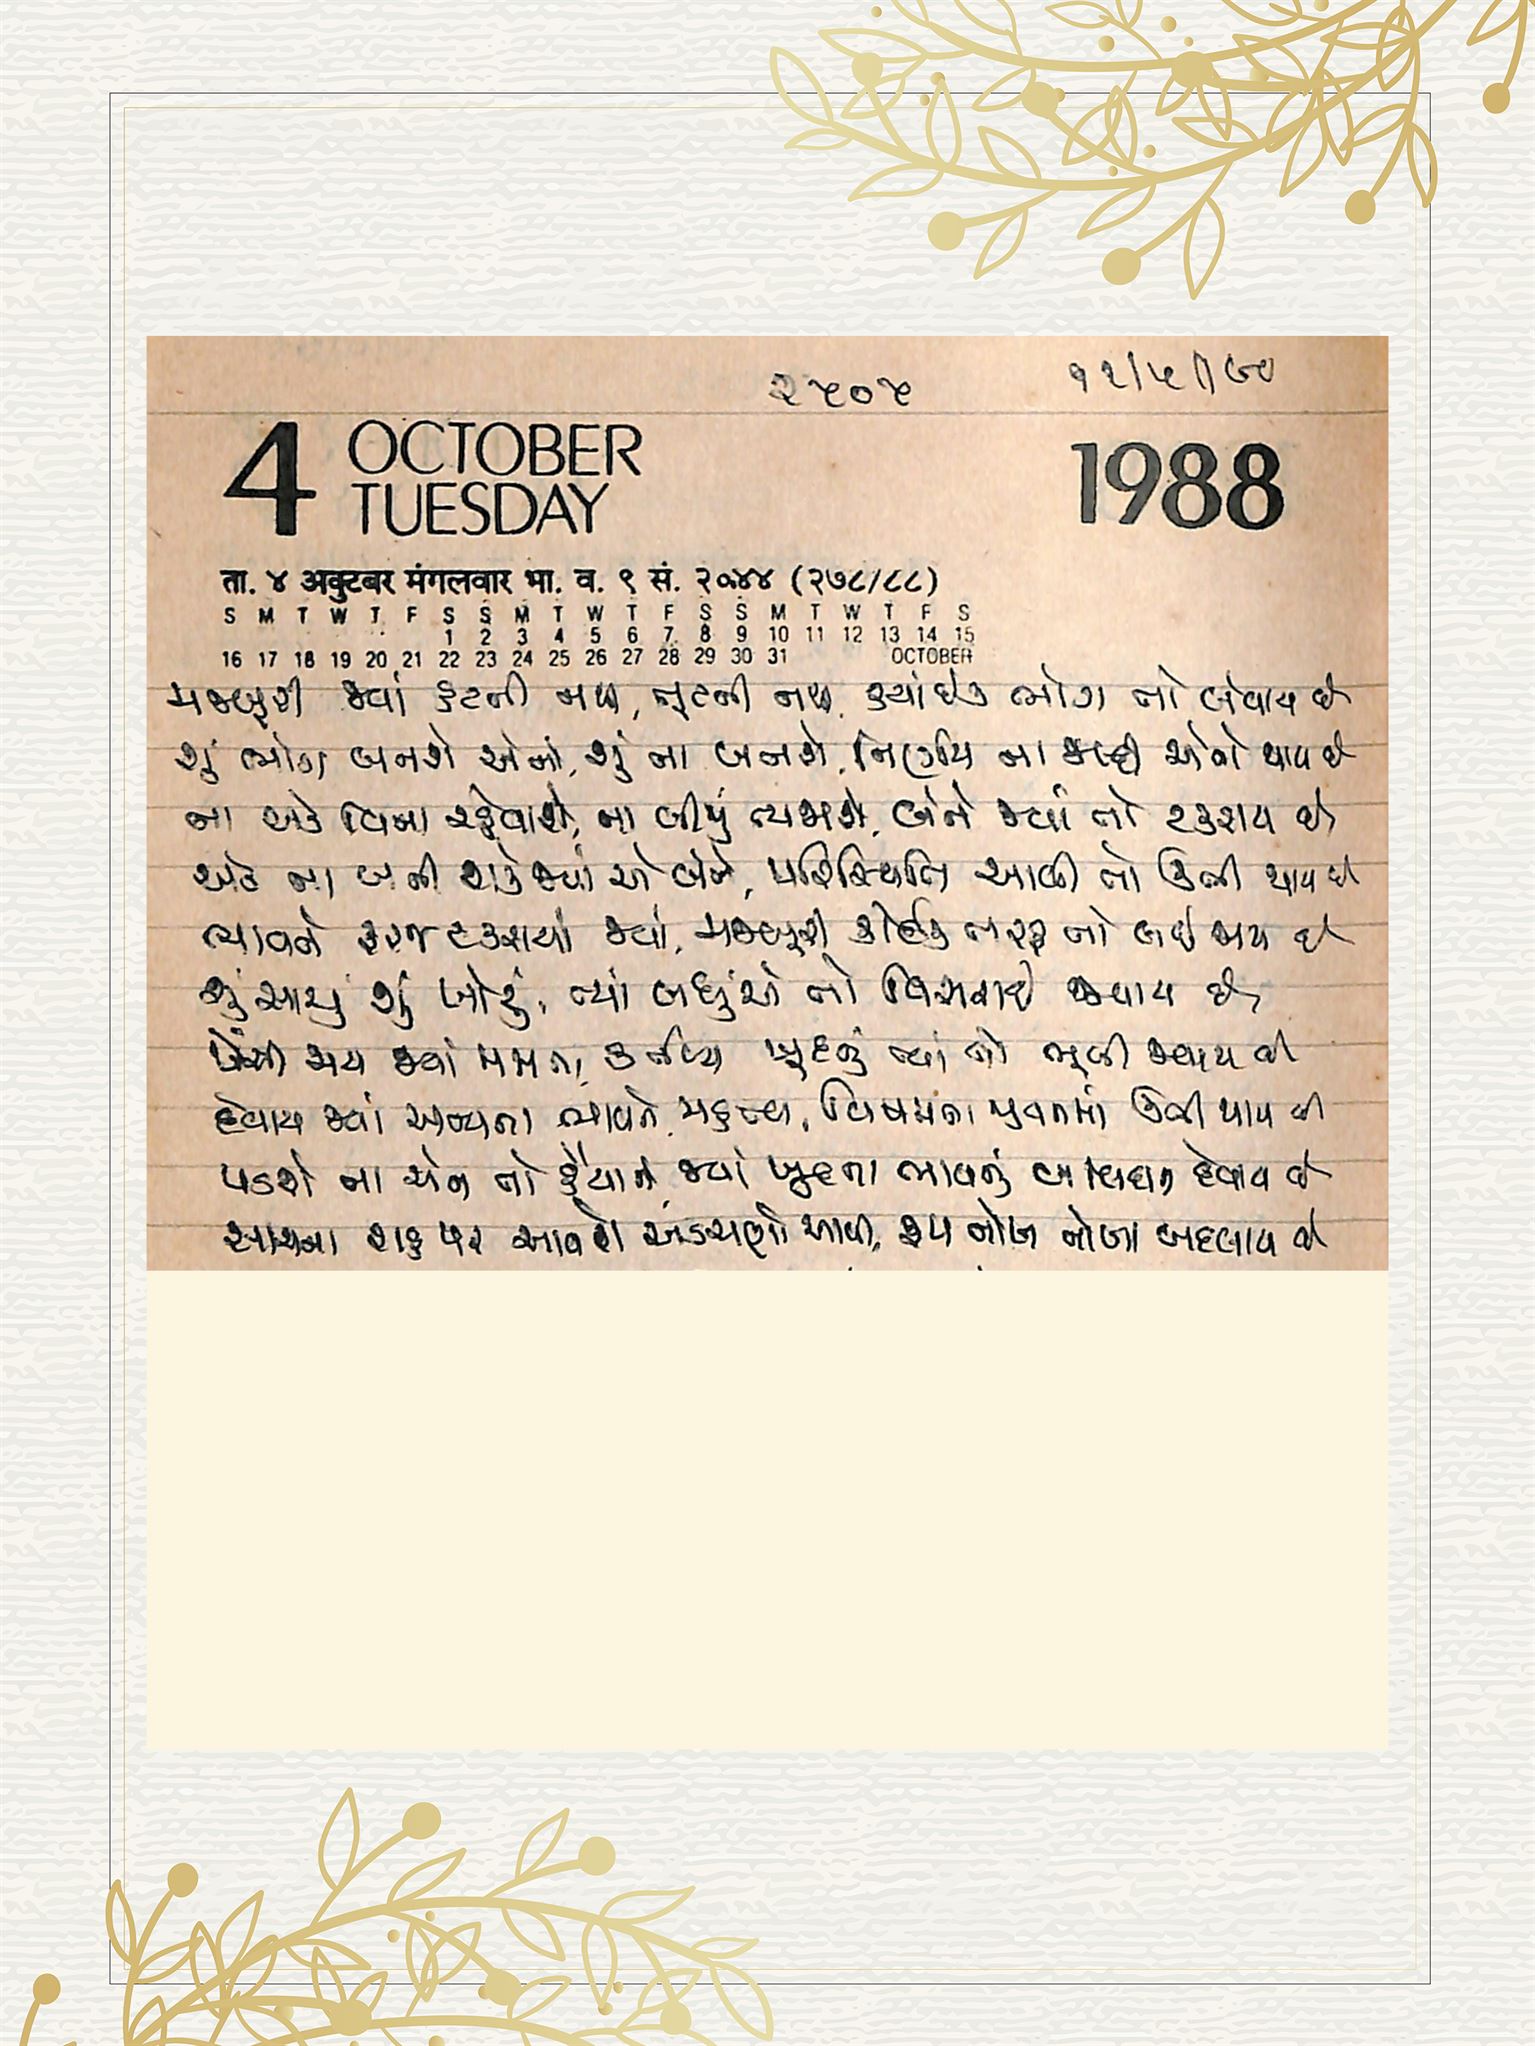 ૨૫૦૫
૧૨/૫/૯૦
4 OCTOBER
TUESDAY
1988
ता. ४ अक्टुबर मंगलवार भा. व. ९ सं. २०४४ (२७८/८८)
S M T W T F S S M T W T F S S M T W T F S
1 2 3 4 5 6 7 8 9 10 11 12 13 14 15
16 17 18 19 20 21 22 23 24 25 26 27 28 29 30 31 OCTOBER
મજબૂરી જ્યાં ફરજની બની, તૂટની બની, ક્યાં કંઈક ભોગ તો લેવાય છે
શું ભોગ બનશે એનો, શું ના બનશે, નિર્ણય ના જલ્દી એનો થાય છે
ના એકે વિના રહેવાશે, ના બીજું ત્યજાશે, બંને જ્યાં તો ટકરાય છે
એક ના બની શકે જ્યાં એ બંને, પરિસ્થિતિ આવી તો ઊભી થાય છે
ભાવને ફરજ ટકરાયાં જ્યાં, મજબૂરી કોઈક તરફ તો લઈ જાય છે
શું સાચું શું ખોટું, ત્યાં બધું એ તો વિસરાઈ જવાય છે
ખેંચી જાય જ્યાં મમતા, કર્તવ્ય ખુદનું ત્યાં તો ભૂલી જવાય છે
દેવાય જ્યાં અન્યના ભાવને મહત્ત્વ, વિષમતા જીવનમાં ઊભી થાય છે
પડશે ના ચેન તો હૈયાને, જ્યાં ખુદના ભાવનું બલિદાન દેવાય છે
સાચના રાહ પર આવશે અડચણો આવી, રૂપ નોખ નોખા બદલાય છે